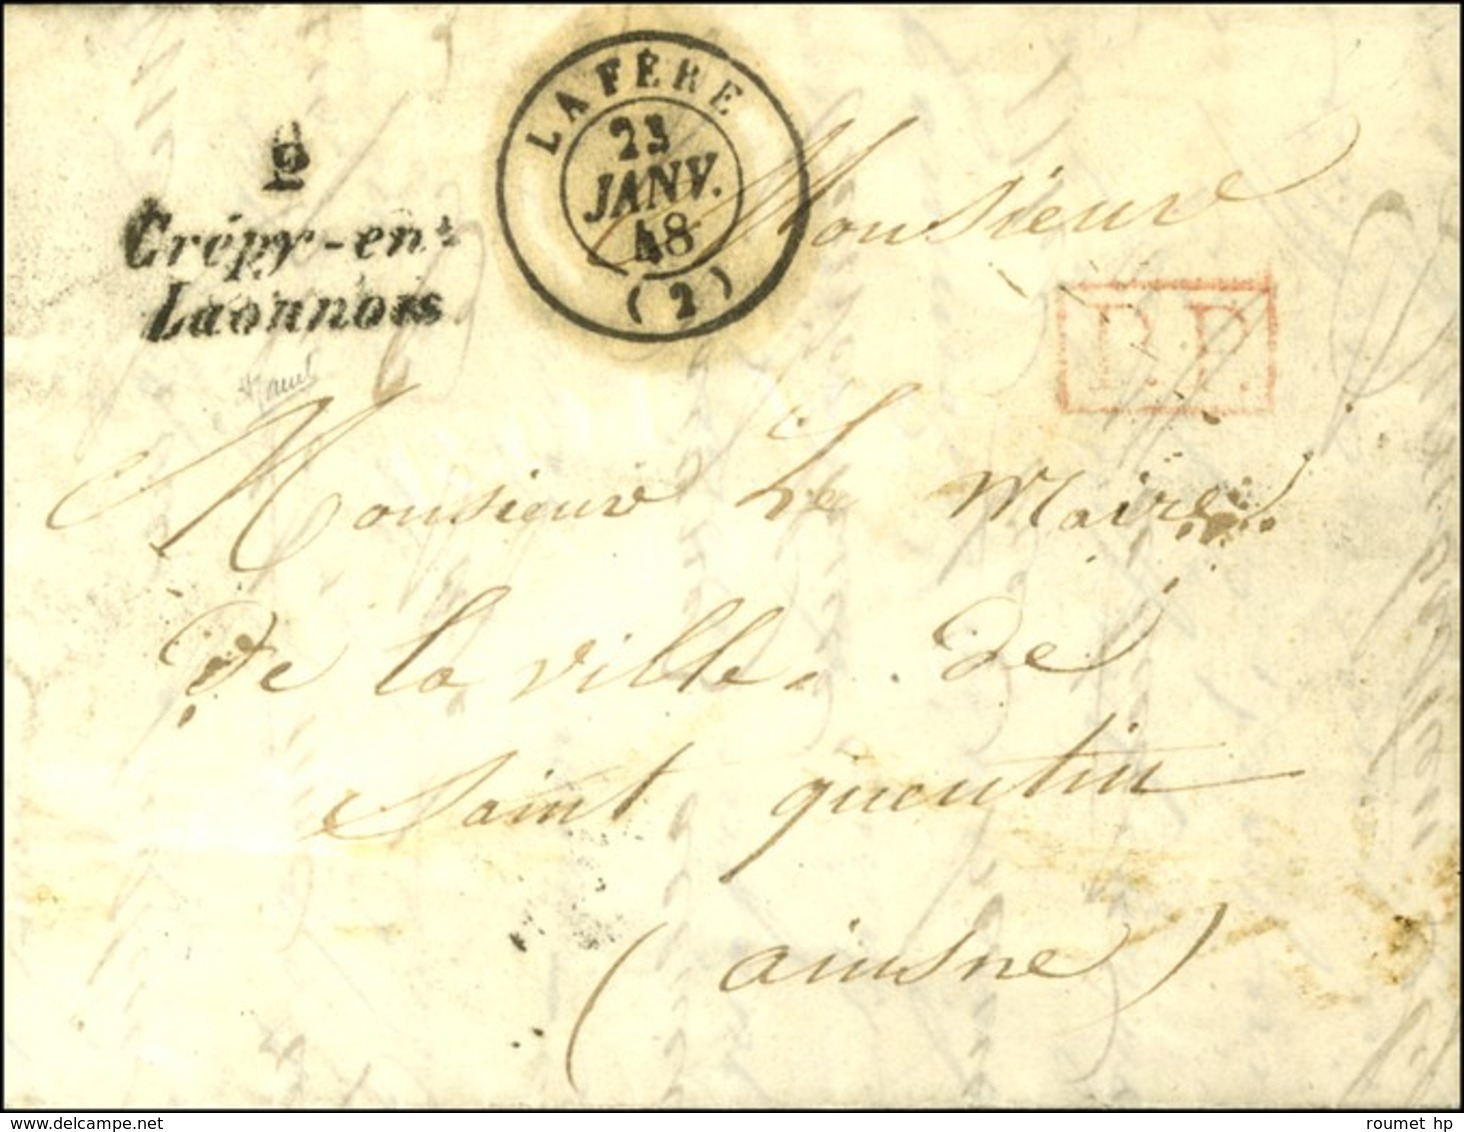 2
Crépy-en-
Laonnois
LA FÈRE
23
JANV.
48
(2)
Monsieur
P.P.
Monsieur Le Maire
de la ville de
Saint quentin
(aiusne)
roumet hp